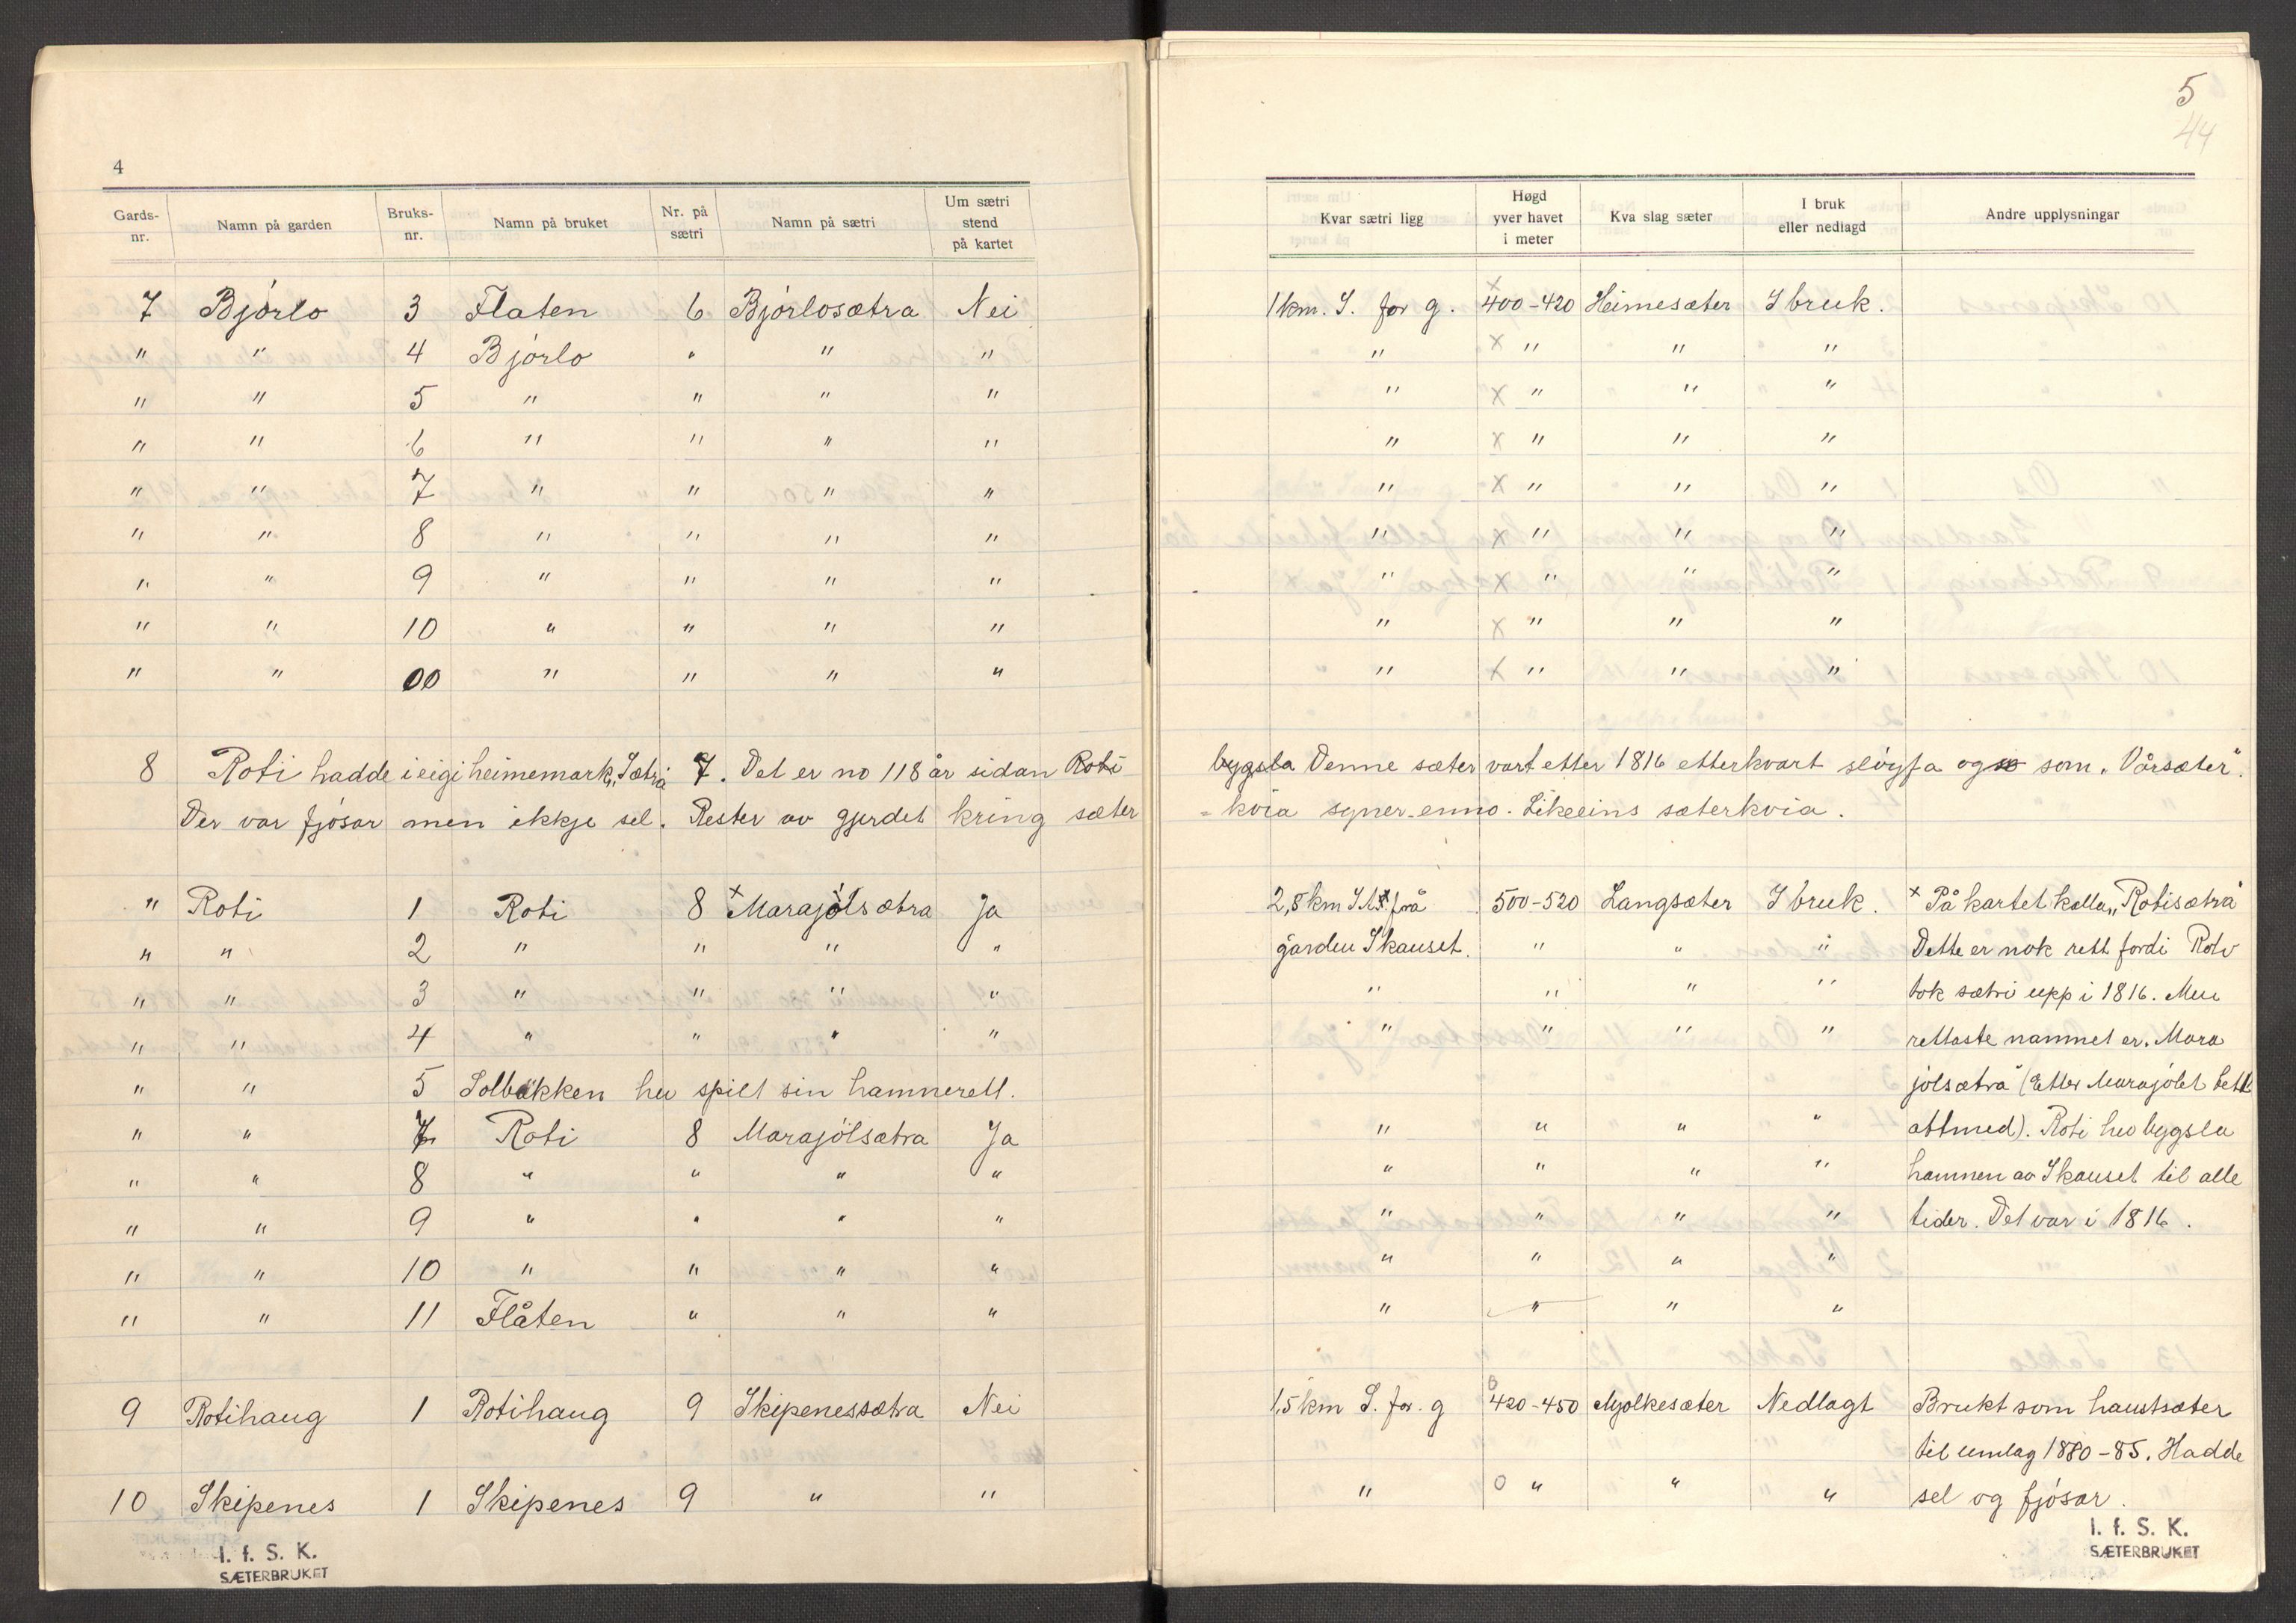 4
Gards-nr. Namn på garden Bruks-nr. Namn på bruket Nr. på sætri Namn på sætri Um sætri stend på kartet
7 Bjórlo 3 Flaten 6 Bjórlosætra Nei
" " 4 Bjórlo " " "
" " 5 " " " "
" " 6 " " " "
" " 7 " " " "
" " 8 " " " "
" " 9 " " " "
" " 10 " " " "
" " 00 " " " "
8 Roti hadde i eigi heimemark „Sætri 7. Det er no 118 år sidan Roti
Der var fjósar men ikkje sel. Rester av gjerdet kring sæter
" Roti 1 Roti 8 × Marajólsætra Ja
" " 2 " " " "
" " 3 " " " "
" " 4 " " " "
" " 5 Solbakken hev spilt sin hamnerett.
" " 7 Roti 8 Marajólsætra Ja
" " 8 " " " "
" " 9 " " " "
" " 10 " " " "
" " 11 Flåten " " "
9 Rotihaug 1 Rotihaug 9 Skipenessætra Nei
10 Skipenes 1 Skipenes 9 " "
I. f. S. K.
SÆTERBRUKET
5
44
Kvar sætri ligg Høgd yver havet i meter Kva slag sæter I bruk eller nedlagd Andre upplysningar
1 km. S. for g. × 400-420 Heimesæter I bruk.
" × " " "
" × " " "
" × " " "
" × " " "
" × " " "
" × " " "
" × " " "
" × " " "
bygsla Denne sæter vart etter 1816 etterkvart slóyfa og som „Vårsæter".
- kvia syner enno. Likeeins sæterkvia.
2,8 km frå 500-520 Langsæter I bruk. × På kartet kalla „Rotisætra"
garden Skauset. " " " Dette er nok rett fordi Roti
" " " " tok sætri upp i 1816. Men
" " " " rettaste namnet er „Mara
jólsætra" (Etter Marajólet tett
" " " " attmed). Roti hev bygsla
" " " " hamnen av Skauset til alle
" " " " tider. Det var i 1816.
" " " "
" " " "
1,5 km S. for. g 0 420-450 Mjolkesæter Nedlagt Brukt som haustsæter
til umlag 1880-85. Hadde
" 0 " " " sel og fjósar.
I. f. S. K.
SÆTERBRUKET